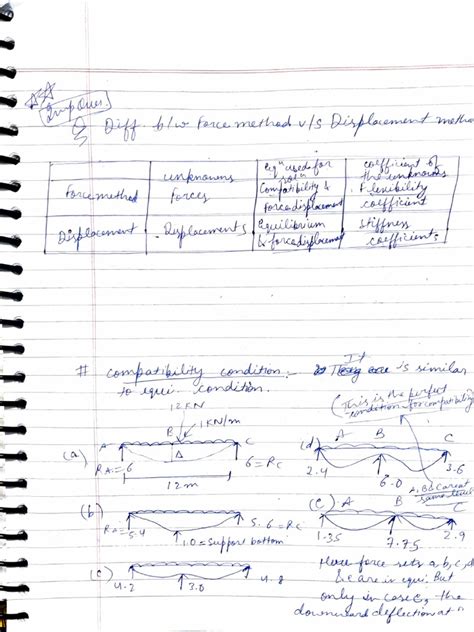 Imp Ques.
Q Diff. b/w Force method v/s Displacement metho
unknowns
eqⁿ used for solⁿ
coefficient of the unknowns
Force method
Forces
Compatibility & Force displacement
Flexibility coefficient
Displacement
Displacements
Equilibrium & force displacement
Stiffness coefficient.
# Compatibility condition :- It is similar
to equi. condition.
(This is the perfect condition for compatibility
12KN
1KN/m
(a) A B C
RA = 6 Δ 6 = RC
12m
(d) A B C
2.4 6.0 3.6
A, B & C are at same level
(b)
RA = 5.4 1.0 = Support bottom 5.6 = RC
(e) A B C
1.35 7.75 2.9
(c)
4.2 3.0 4.8
Here force sets a, b, c, d
& e are in equi. But
only in case e, the
downward deflection at